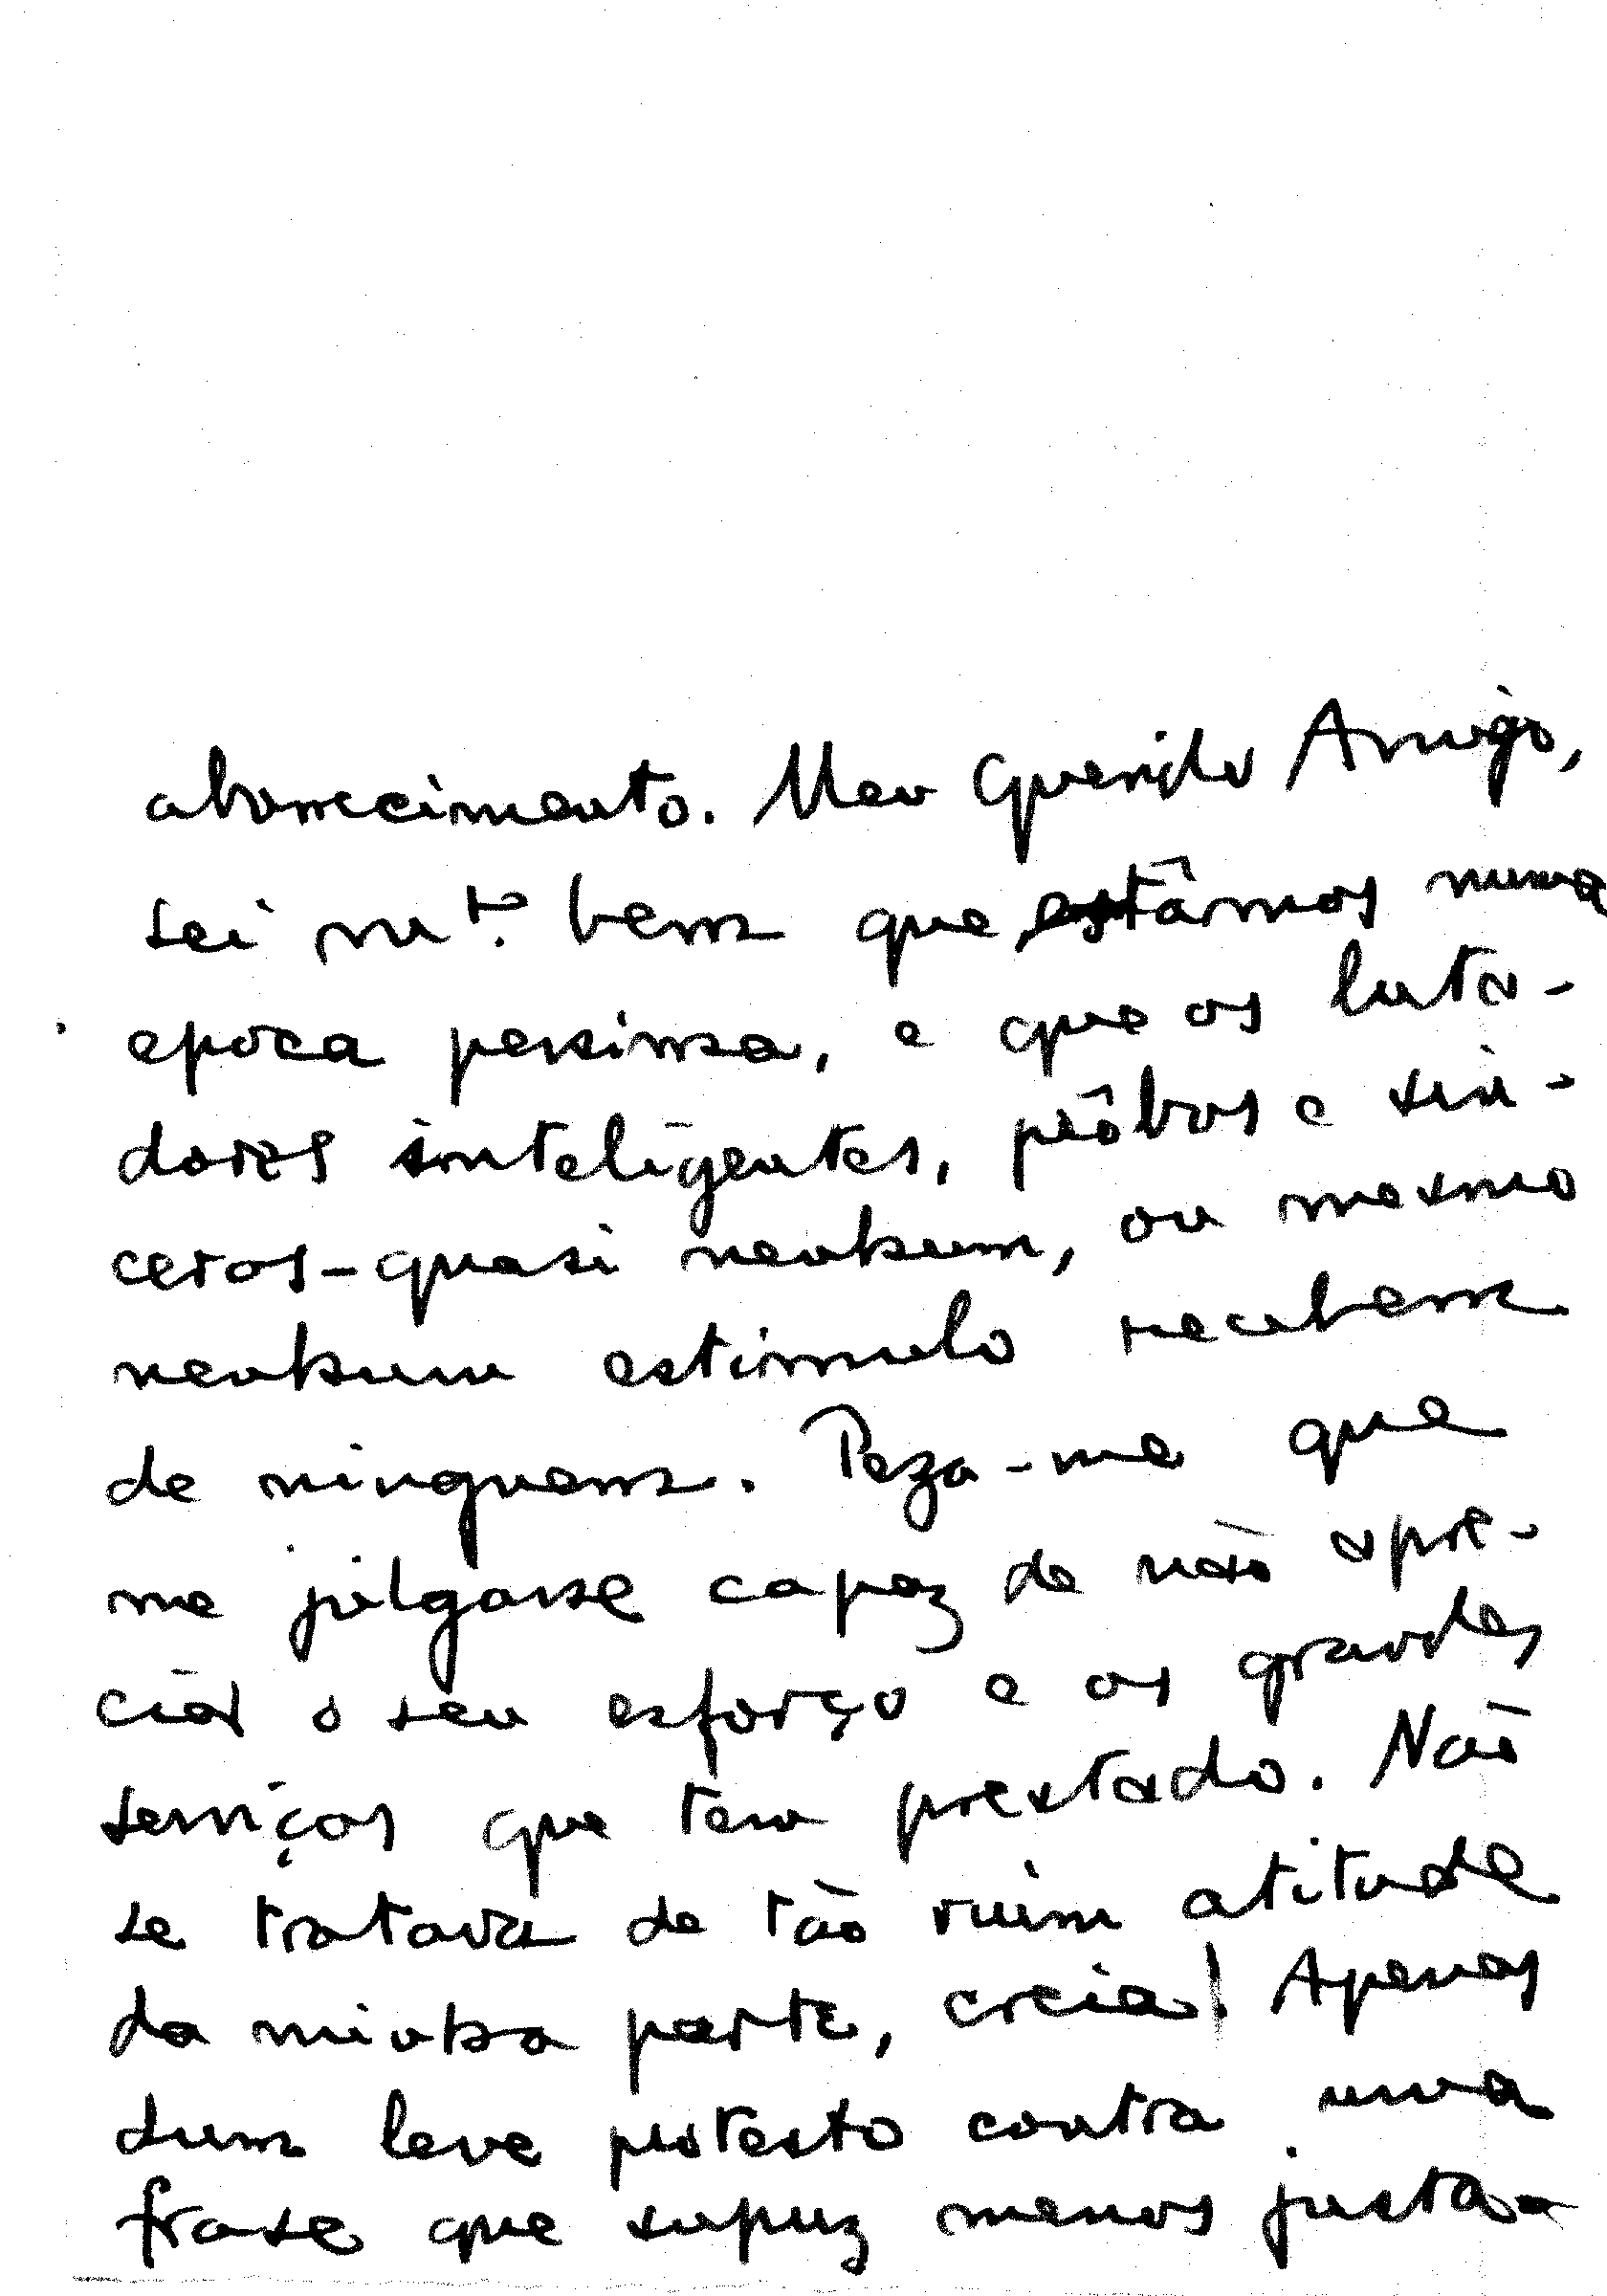 aborrecimento. Meu Querido Amigo,
sei mto. bem que estâmos numa
epoca pessima, e que os luta-
dores inteligentes, próbos e sin-
ceros - quasi nenhum, ou mesmo
nenhum estimulo recebem
de ninguem. Peza-me que
me julgasse capaz de não apre-
ciar o seu esforço e os grandes
serviços que tem prestado. Não
se tratava de tão ruim atitude
da minha parte, creia! Apenas
dum leve protesto contra uma
frase que supuz menos justa -